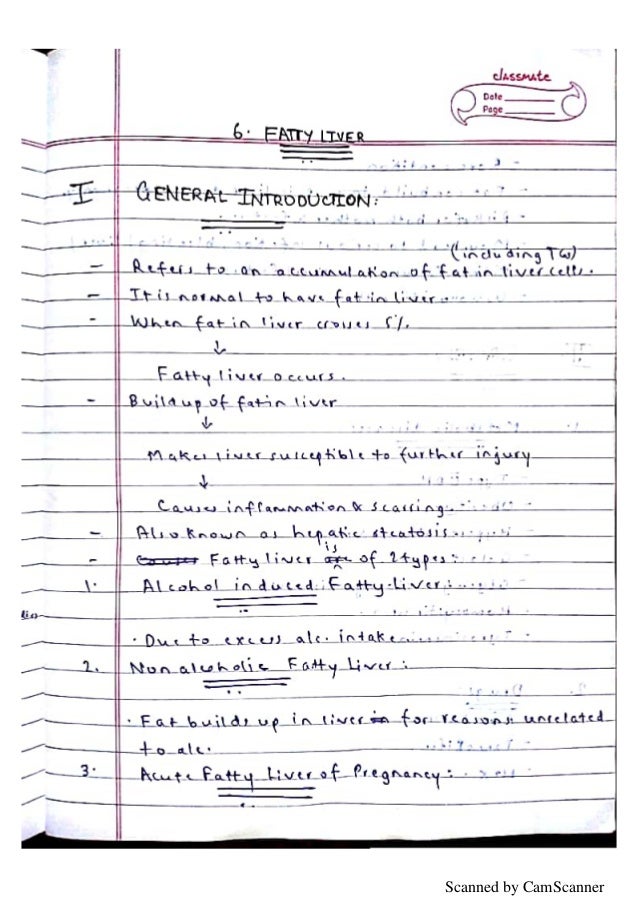 classmate
Date
Page
6. FATTY LIVER
I GENERAL INTRODUCTION:
(including TG)
- Refers to an accumulation of fat in liver cells.
- It is normal to have fat in liver
- When fat in liver crosses 5%
↓
Fatty liver occurs.
- Buildup of fat in liver
↓
Makes liver susceptible to further injury
↓
Causes inflammation & scarring
- Also known as hepatic steatosis
is
- Fatty liver of 2 types:
1. Alcohol induced Fatty Liver:
· Due to excess alc. intake
2. Non alcoholic Fatty Liver:
· Fat builds up in liver for reasons unrelated
to alc.
3. Acute Fatty Liver of Pregnancy:
Scanned by CamScanner